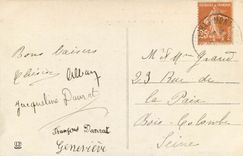 Bons baisers
Jacqueline Dauzat
François Dauzat
Geneviève
M et Mme Graud
23 Rue de
la Paix
Bois-Colombes
Seine
25